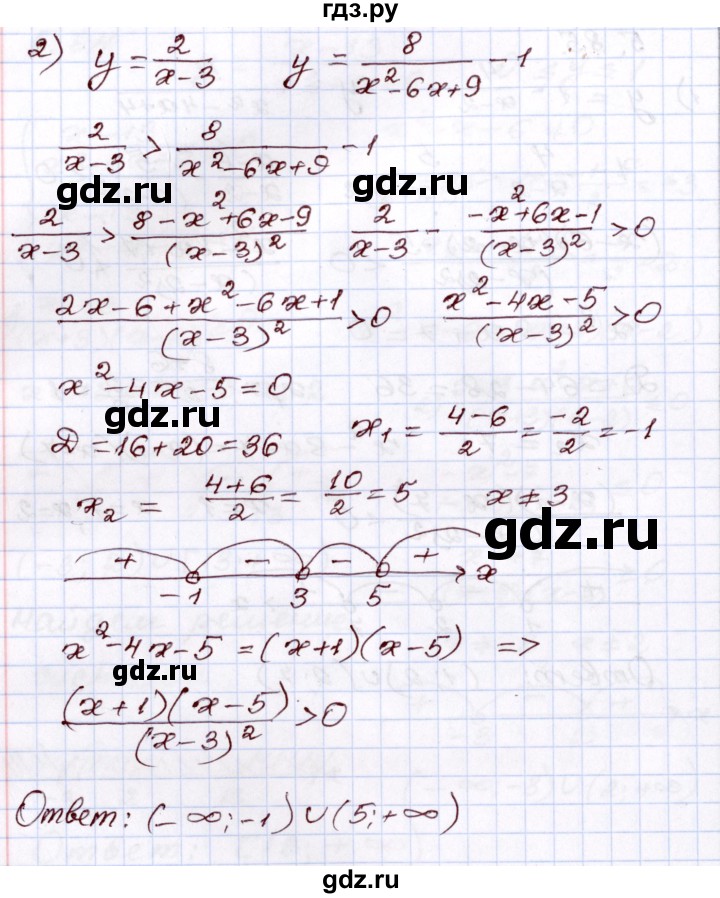 гдз.ру
2) y = 2/(x-3)    y = 8/(x²-6x+9) - 1
2/(x-3) > 8/(x²-6x+9) - 1
gdz.ru gdz.ru
2/(x-3) > (8-x²+6x-9)/(x-3)²    2/(x-3) - (-x²+6x-1)/(x-3)² > 0
(2x-6+x²-6x+1)/(x-3)² > 0    (x²-4x-5)/(x-3)² > 0
x²-4x-5=0
gdz.ru
Д=16+20=36    x₁ = (4-6)/2 = -2/2 = -1
x₂ = (4+6)/2 = 10/2 = 5    x ≠ 3
gdz.ru
+ - - + x
-1 3 5
x²-4x-5 = (x+1)(x-5) =>
gdz.ru
(x+1)(x-5)/(x-3)² > 0
gdz.ru
Ответ: (-∞;-1)∪(5;+∞)
gdz.ru